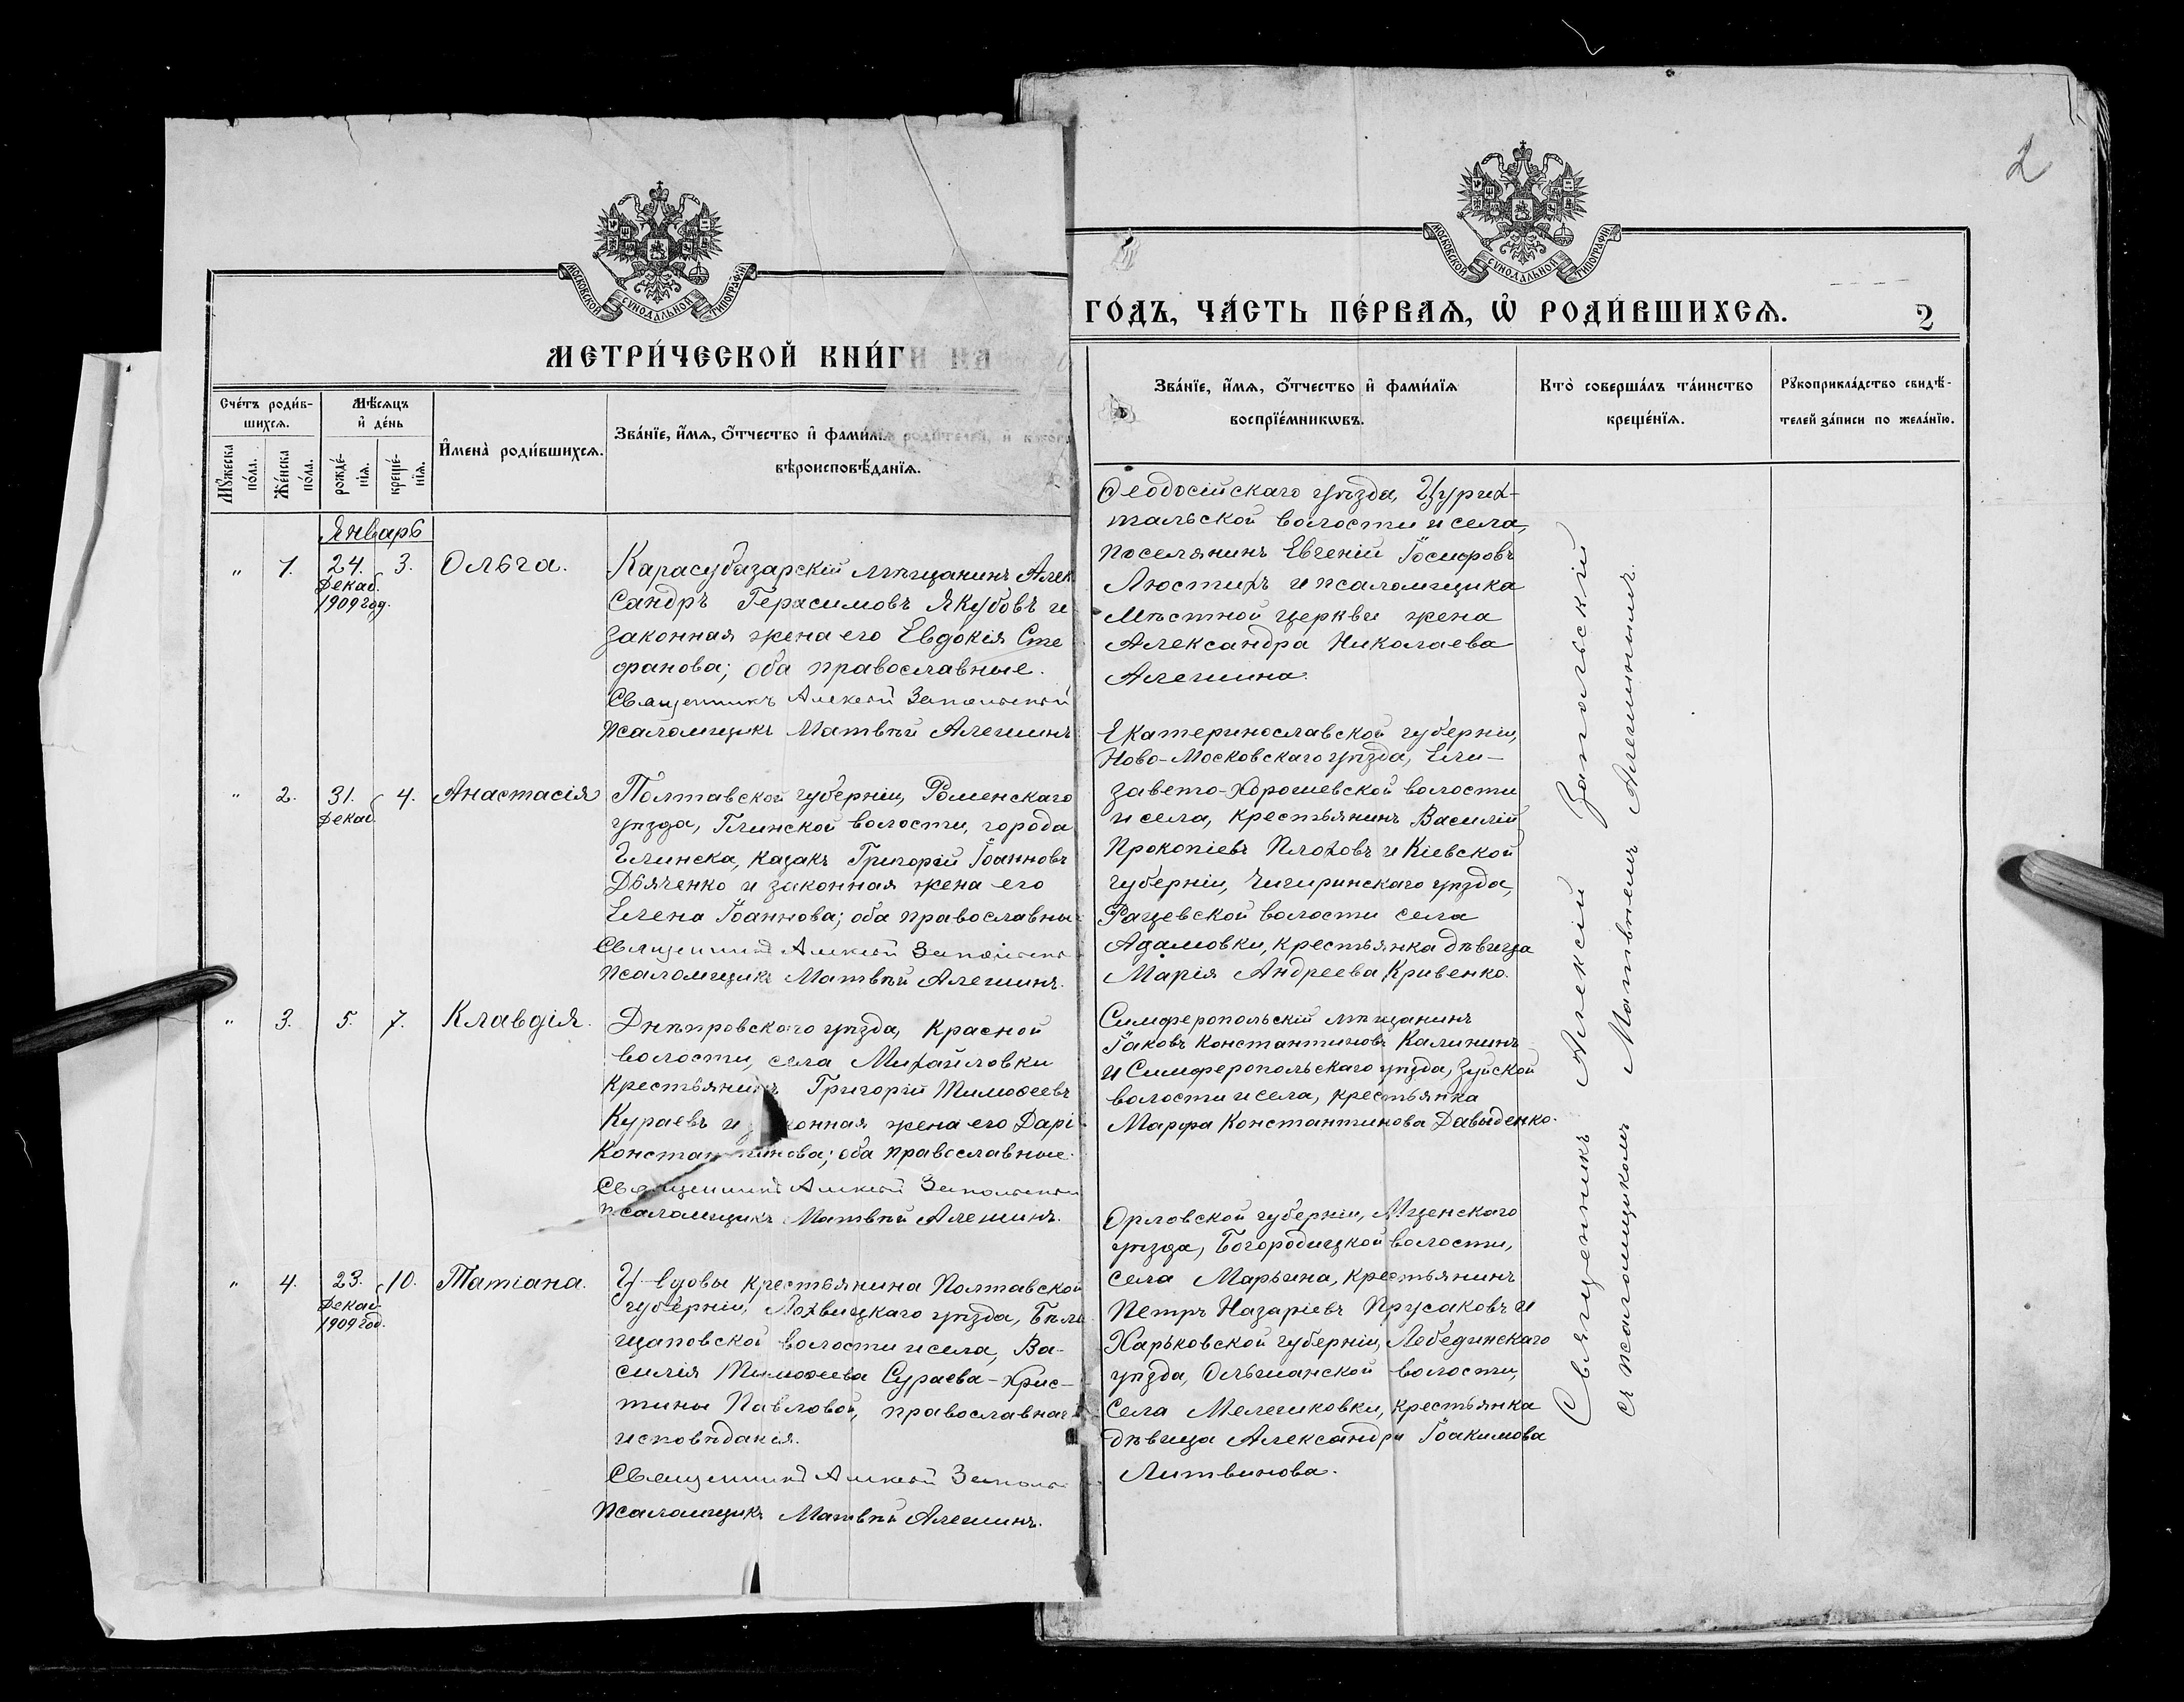 2
МОСКОВСКОЙ СѴНОДАЛЬНОЙ ТИПОГРАФІИ
МЕТРИ́ЧЕСКОЙ КНИ́ГИ НА
Сче́тъ роди́в-
шихсѧ.
Мѣ́сѧцъ
и҆ де́нь
Мꙋ́жеска
по́ла.
Же́нска
по́ла.
рожде́-
нїѧ.
креще́-
нїѧ.
И҆мена̀ роди́вшихсѧ.
Зва́нїе, и҆́мѧ, ѻ҆́тчество и҆ фами́лїѧ роди́телей, и҆
вѣроисповѣ́данїѧ.
Январь
" 1. 24. 3. Ольга.
Декаб.
1909 год.
Карасубазарскій мѣщанинъ Алек
сандръ Герасимовъ Якубовъ и
законная жена его Евдокія Сте
фанова; оба православные.
Священникъ Алексій Запольскій
Псаломщикъ Матвѣй Алешинъ
" 2. 31. 4. Анастасія
Декаб.
Полтавской губерніи, Роменскаго
уѣзда, Глинской волости, города
Глинска, казакъ Григорій Іоанновъ
Дьяченко и законная жена его
Елена Іоаннова; оба православны
Священникъ Алексій Запольскі
Псаломщикъ Матвѣй Алешинъ.
" 3. 5. 7. Клавдія.
Днѣпровского уѣзда, Красной
волости, села Михайловки
крестьянинъ Григорій Тимоѳеевъ
Кураевъ и законная жена его Дарі
Константинова; оба православные.
Священникъ Алексій Запольскій
Псаломщикъ Матвѣй Алешинъ.
" 4. 23. 10. Татіана.
Декаб.
1909 год.
У вдовы крестьянина Полтавской
губерніи, Лохвицкаго уѣзда, Бѣло
щаповской волости и села, Ва-
силія Тимоѳеева Сураева - Хрис-
тины Павловой, православнаго
исповѣданія.
Священникъ Алексій Запольс
Псаломщикъ Матвѣй Алешинъ.
МОСКОВСКОЙ СѴНОДАЛЬНОЙ ТИПОГРАФІИ
ГО́ДЪ, ЧА́СТЬ ПЕ́РВАѦ, Ѽ РОДИ́ВШИХСѦ.
2
Зва́нїе, и҆́мѧ, ѻ҆́тчество и҆ фами́лїѧ
воспрїе́мникѡвъ.
Кто̀ соверша́лъ та́инство
креще́нїѧ.
Рꙋкоприкла́дство свидѣ́-
телей за́писи по жела́нїю.
Ѳеодосійскаго уѣзда, Цурих-
тальской волости и села,
поселянинъ Евгеній Іосифовъ
Люстихъ и псаломщика
мѣстной церкви жена
Александра Николаева
Алешина.
Екатеринославской губерніи,
Ново-Московскаго уѣзда, Ели-
завето-Хорошевской волости
и села, крестьянинъ Василій
Прокопіевъ Плоховъ и Кіевской
губерніи, Чигиринскаго уѣзда,
Рацевской волости села
Адамовки, крестьянка дѣвица
Марія Андреева Кривенко.
Симферопольскій мѣщанинъ
Іаковъ Константиновъ Калининъ
и Симферопольскаго уѣзда, Зуйской
волости и села, крестьянка
Марфа Константинова Давыденко.
Орловской губерніи, Мценскаго
уѣзда, Богородицкой волости,
села Марьина, крестьянинъ
Петръ Назаріевъ Прусаковъ и
Харьковской губерніи, Лебединскаго
уѣзда, Ольшанской волости,
села Мелешковки, крестьянка
дѣвица Александра Іоакимова
Литвинова.
Священникъ Алексій Запольскій
съ псаломщикомъ Матвѣемъ Алешинымъ.